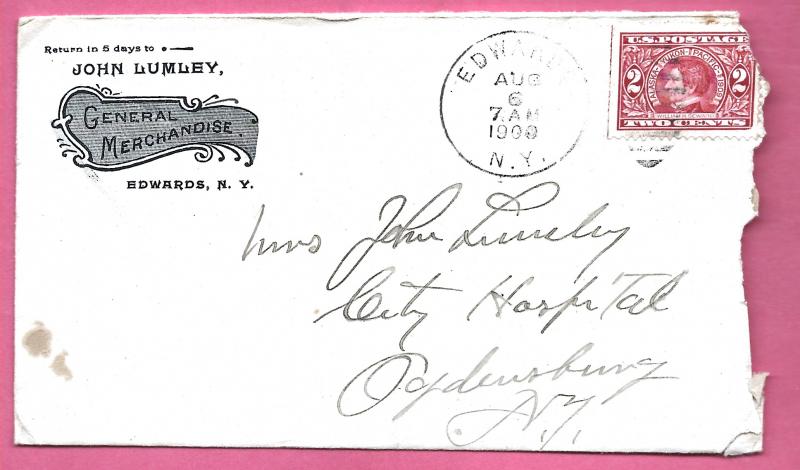 Return in 5 days to
JOHN LUMLEY,
GENERAL
MERCHANDISE.
EDWARDS, N. Y.
EDWARDS
AUG
6
7 AM
1909
N.Y.
U.S. POSTAGE
ALASKA·YUKON·PACIFIC·1909
2 2
WILLIAM H. SEWARD
TWO CENTS
Mrs John Lumley
City Hospital
Ogdensburg
N.Y.